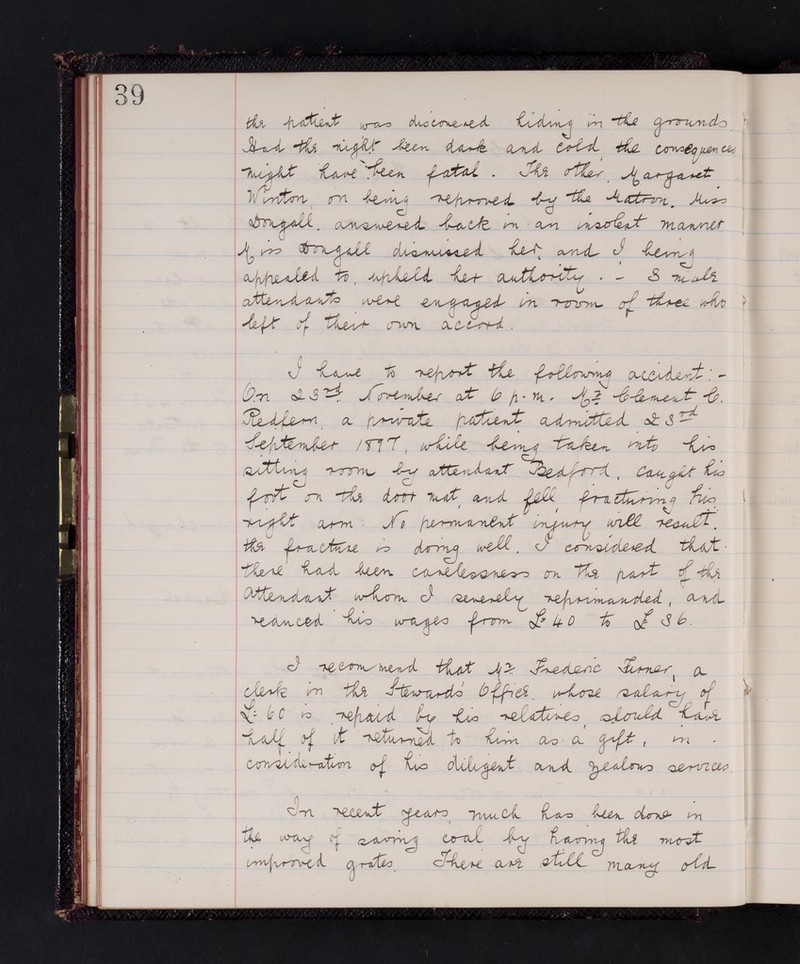 39
the patient was discovered hiding in the grounds.
Had the night been dark and cold, the consequences
might have been fatal. The other, Margaret
Winton, on being reproved by the Matron, Miss
Dougall, answered back in an insolent manner
Miss Dougall dismissed her, and I being
appealed to, upheld her authority. - 3 male
attendants were engaged in room of three who
left of their own accord.
I have to report the following accident: -
On 23rd November at 6 p.m. Mr Clement C.
Redfern, a private patient, admitted 23rd
September 1897, while being taken into his
sitting room by attendant Bedford, caught his
foot on the door mat, and fell, fracturing his
right arm. No permanent injury will result.
the fracture is doing well. I considered that
there had been carelessness on the part of the
Attendant whom I severely reprimanded, and
reduced his wages from £40 to £36.
I recommend that Mr Frederic Turner, a
clerk in the Stewards' Office, whose salary of
£60 is repaid by his relatives, should have
half of it returned to him as a gift, in
consideration of his diligent and zealous services.
In recent years, much has been done in
the way of saving coal by having the most
improved grates. There are still many old